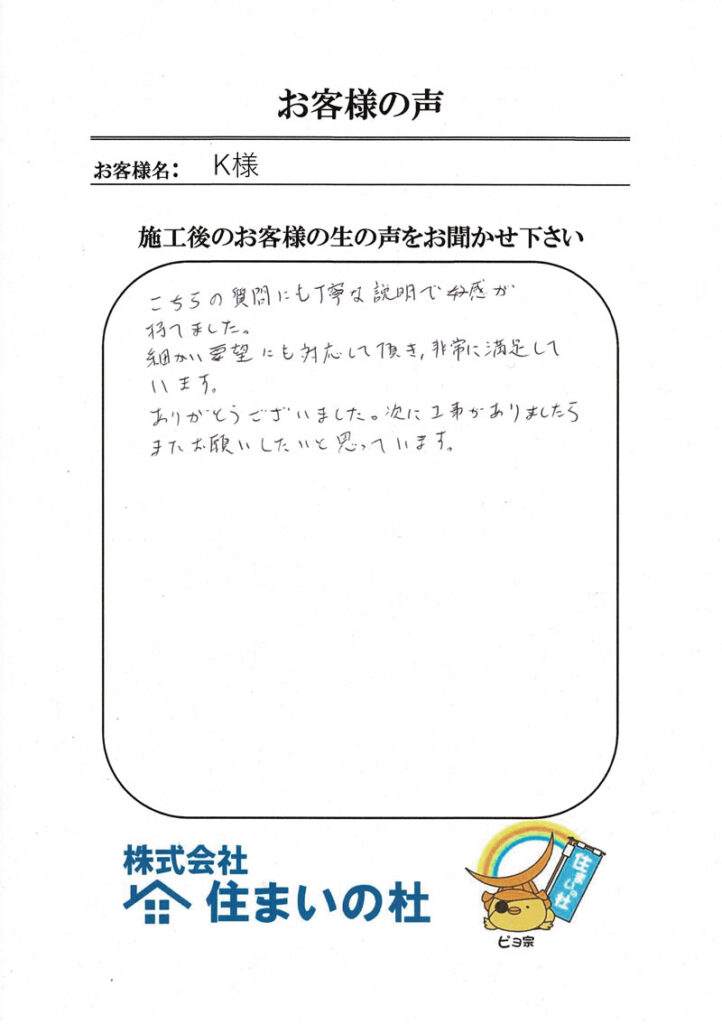 お客様の声
お客様名： K様
施工後のお客様の生の声をお聞かせ下さい
こちらの質問にも丁寧な説明で好感が
持てました。
細かい要望にも対応して頂き,非常に満足して
います。
ありがとうございました。次に工事がありましたら
またお願いしたいと思っています。
株式会社
住まいの杜
住まいの杜
ピヨ宗